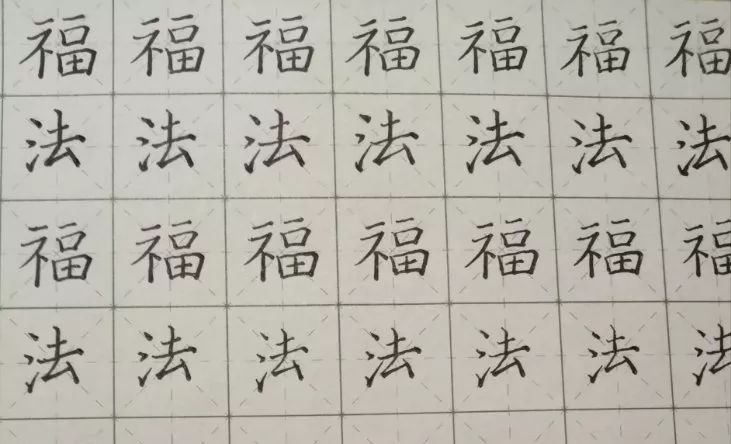 福福福福福福福
法法法法法法法
福福福福福福福
法法法法法法法